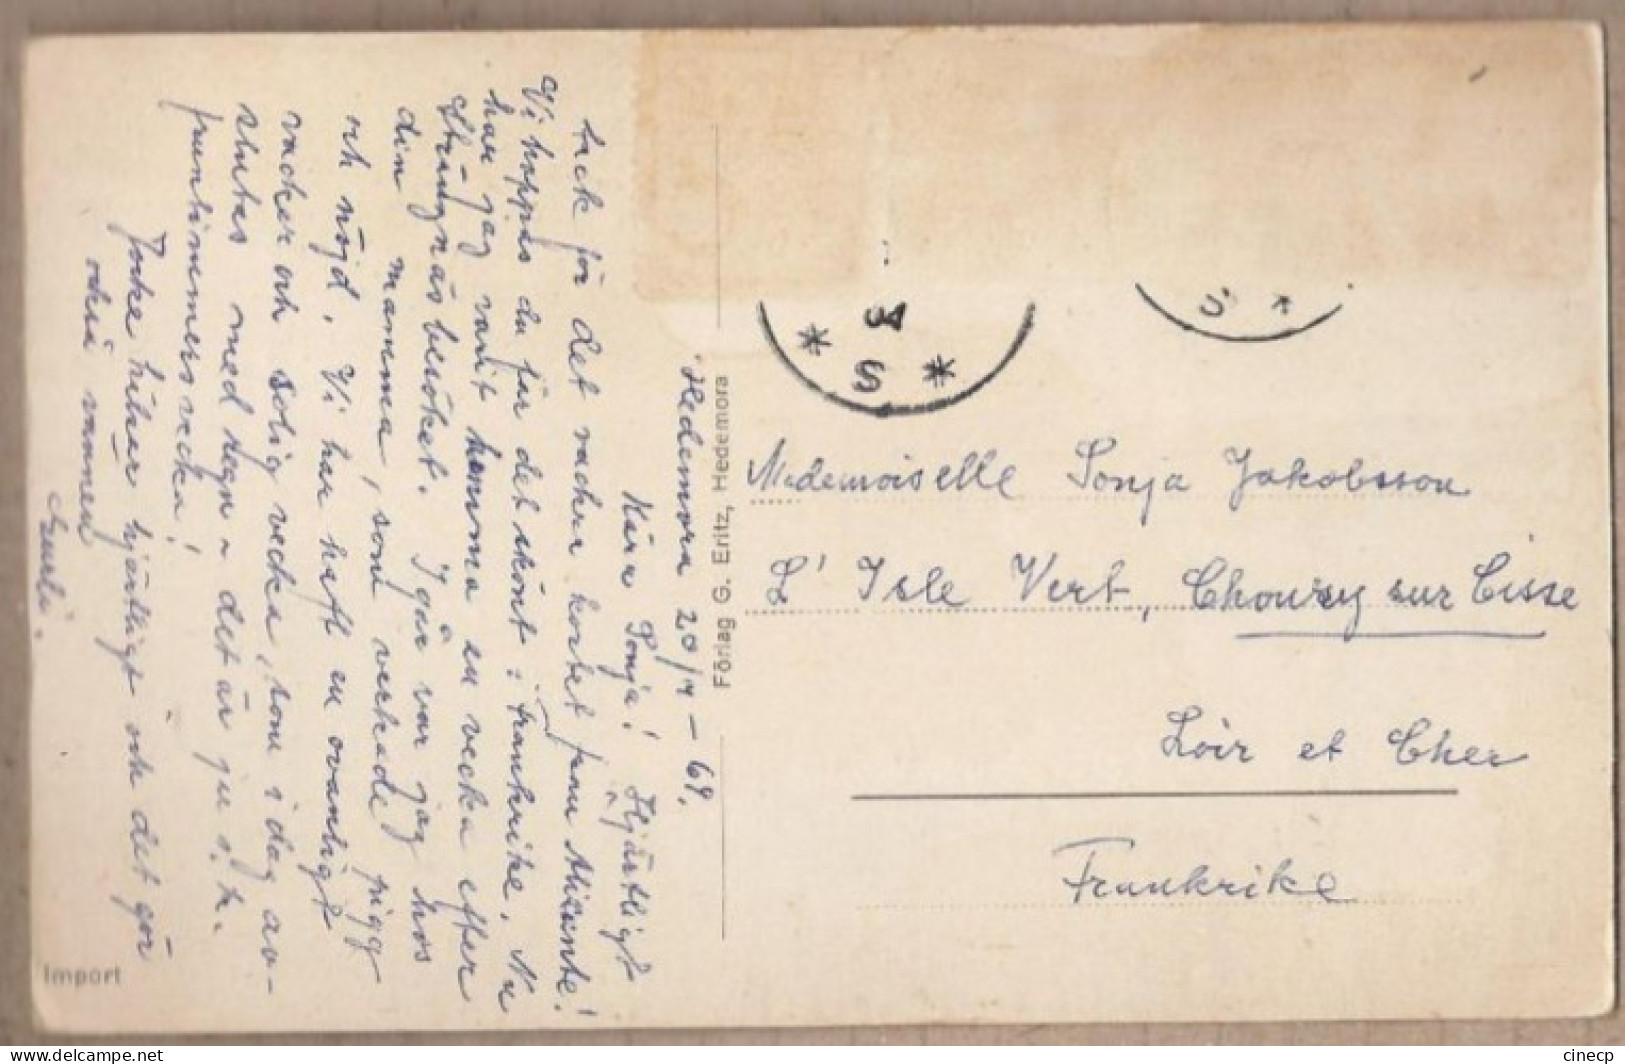 Hedemora 20/7 – 69.
Kära Sonja! Hjärtligt
tack för det vackra kortet från
Vi hoppas du får det skönt i Frankrike. Nu
har jag varit hemma en vecka efter
Strängnäsbesöket. Igår var jag hos
din mamma, som verkade pigg
och nöjd. Vi har haft en ovanligt
vacker och solig vecka, som i dag av-
slutas med regn – det är ju s.k.
fruntimmersvecka!
Jocke hälsar hjärtligt och det gör
också vännen
Förlag G. Eritz, Hedemora
Import
Mademoiselle Sonja Jakobsson
L' Isle Vert, Chouzy sur Cisse
Loir et Cher
Frankrike
cinecp
delcampe.net